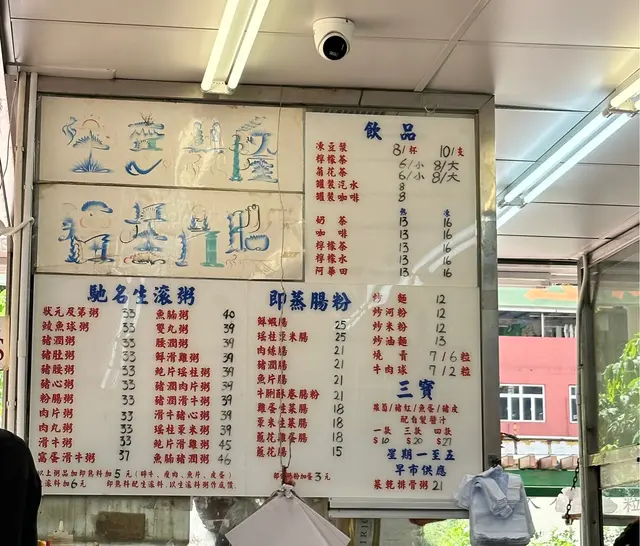 飲品
凍豆漿 8/杯 10/支
檸檬茶 6/小 8/大
菊花茶 6/小 8/大
罐裝汽水 8
罐裝咖啡 8
熱 凍
奶茶 13 16
咖啡 13 16
檸檬茶 13 16
檸檬水 13 16
阿華田 13 16
馳名生滾粥
狀元及第粥 33
鯪魚球粥 33
豬潤粥 33
豬肚粥 33
豬腰粥 33
豬心粥 33
粉腸粥 33
肉片粥 33
肉丸粥 33
滑牛粥 33
窩蛋滑牛粥 37
魚腩粥 40
雙丸粥 39
腰潤粥 39
鮮滑雞粥 39
鮑片瑤柱粥 39
豬潤肉片粥 39
豬潤滑牛粥 39
滑牛豬心粥 39
瑤柱粟米粥 39
鮑片滑雞粥 45
魚腩豬潤粥 46
以上粥品加即熟料加5元
生滾料加6元 即熟料配生滾料,以生滾料粥作底價
即蒸腸粉
鮮蝦腸 25
瑤柱粟米腸 25
肉絲腸 21
豬潤腸 21
魚片腸 21
牛脷酥卷腸粉 21
雞蛋生菜腸 18
粟米生菜腸 18
蔥花雞蛋腸 18
蔥花腸 15
加蛋3元
炒麵 12
炒河粉 12
炒米粉 12
炒油麵 13
燒賣 7/6粒
牛肉球 7/2粒
三寶
蘿蔔/豬紅/魚蛋/豬皮
配自製醬汁
一款 三款 四款
$10 $20 $27
星期一至五
早市供應
菜乾排骨粥 21